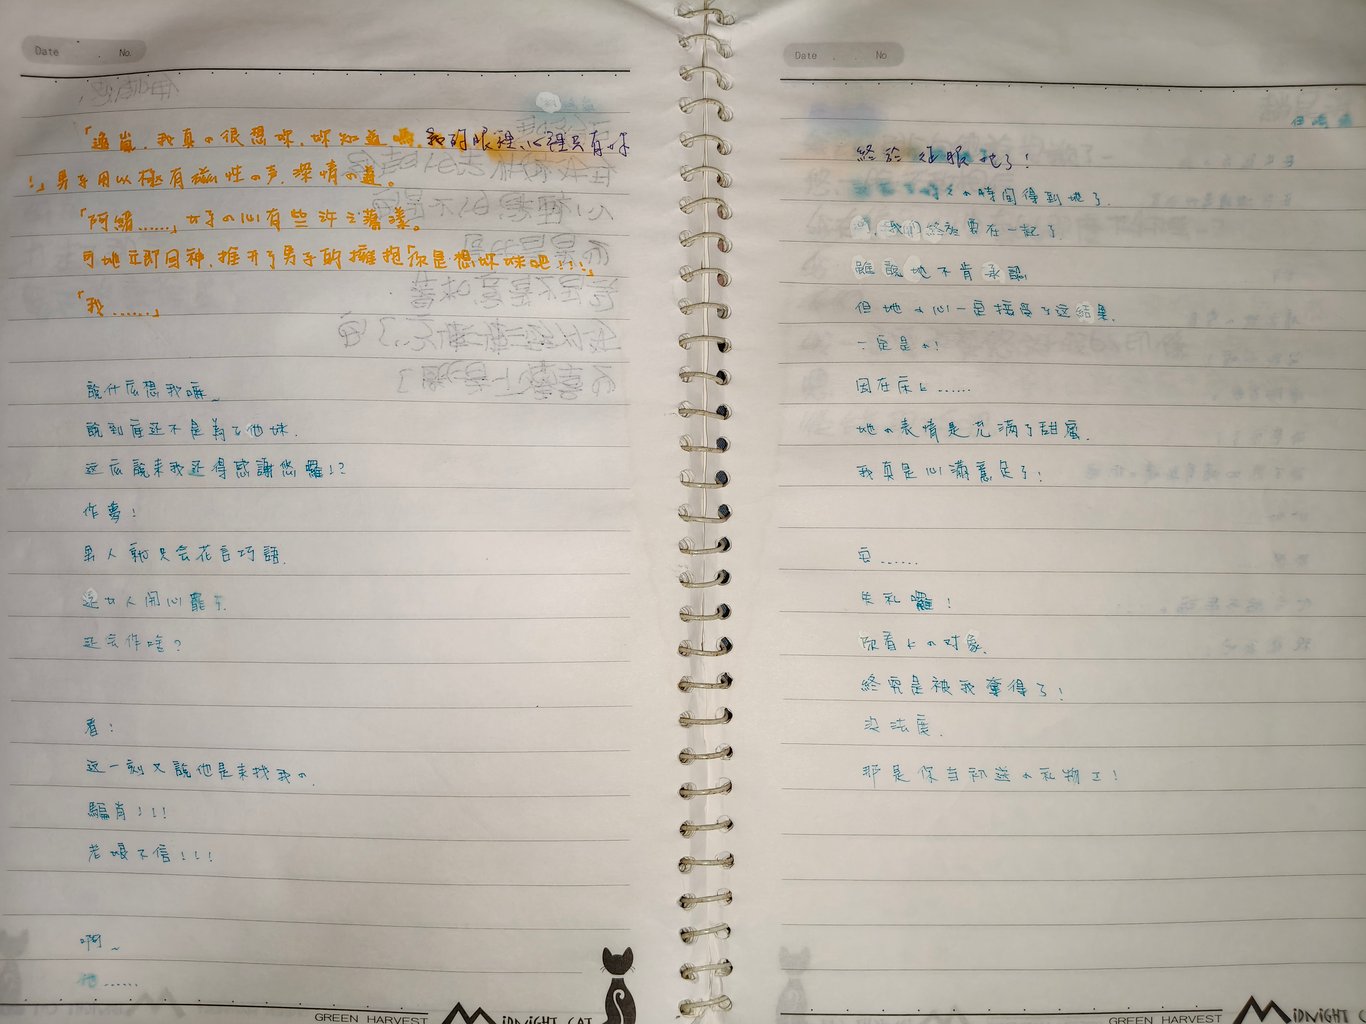 Date . . No.
「 嵐，我真の很想妳，妳知道嗎，我的眼裡、心裡只有妳
！」男子用以極有磁性の声，深情の道。
「阿 ……」女子の心有些許之蕩漾。
可她立即回神，推开了男子的擁抱「你是想妳妹吧！！！」
「我……」
說什広想我嘛～
說到底还不是為了他妹．
这広說来我还得感謝您囉！？
作夢！
男人就只会花言巧語．
逗女人開心罷了．
还会作啥？
看！
这一刻又說他是来找我の．
騙肖！！！
老娘不信！！！
啊～
……
GREEN HARVEST MIDNIGHT CAT
Date . . No
終於征服她了！
の時間得到她了．
啊，我們終於要在一起了．
雖說她不肯承認
但她の心一定接受了这結果．
一定是の！
因在床上……
她の表情是充滿了甜蜜．
我真是心滿意足了！
安……
失礼囉！
你看上の対象．
終究是被我奪得了！
没法度．
那是你当初送の礼物 ！
GREEN HARVEST MIDNIGHT C